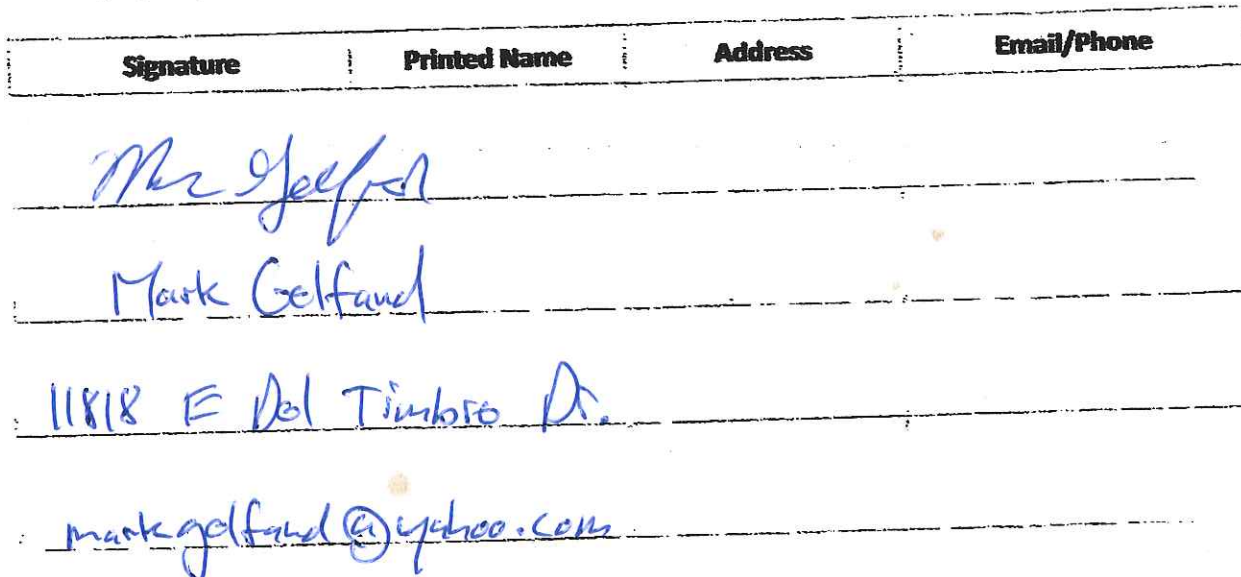 Signature Printed Name Address Email/Phone
Mark Gelfand
Mark Gelfand
11818 E Del Timbre Dr.
markgelfand@yahoo.com